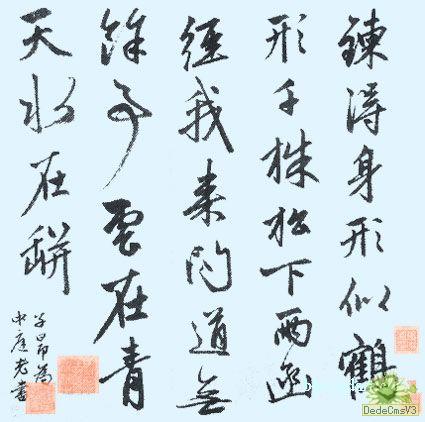 鍊得身形似鶴
形千株松下兩函
經我來問道無
餘事雲在青
天水在缾
子昂為
中庭老書
DedeCmsV3